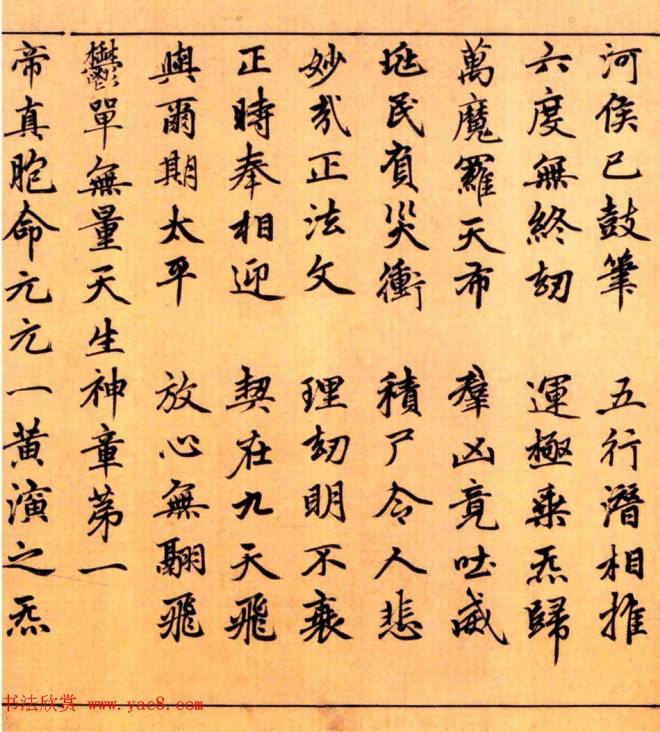 河侯已鼓筆 五行潛相推
六度無終劫 運極乘炁歸
萬魔羅天布 羣凶竟吐威
兆民負災衝 積尸令人悲
妙哉正法文 理劫明不衰
正時奉相迎 契在九天飛
與爾期太平 放心無翮飛
鬱單無量天生神章第一
帝真胞命元元一黃演之炁
书法欣赏 www.yac8.com